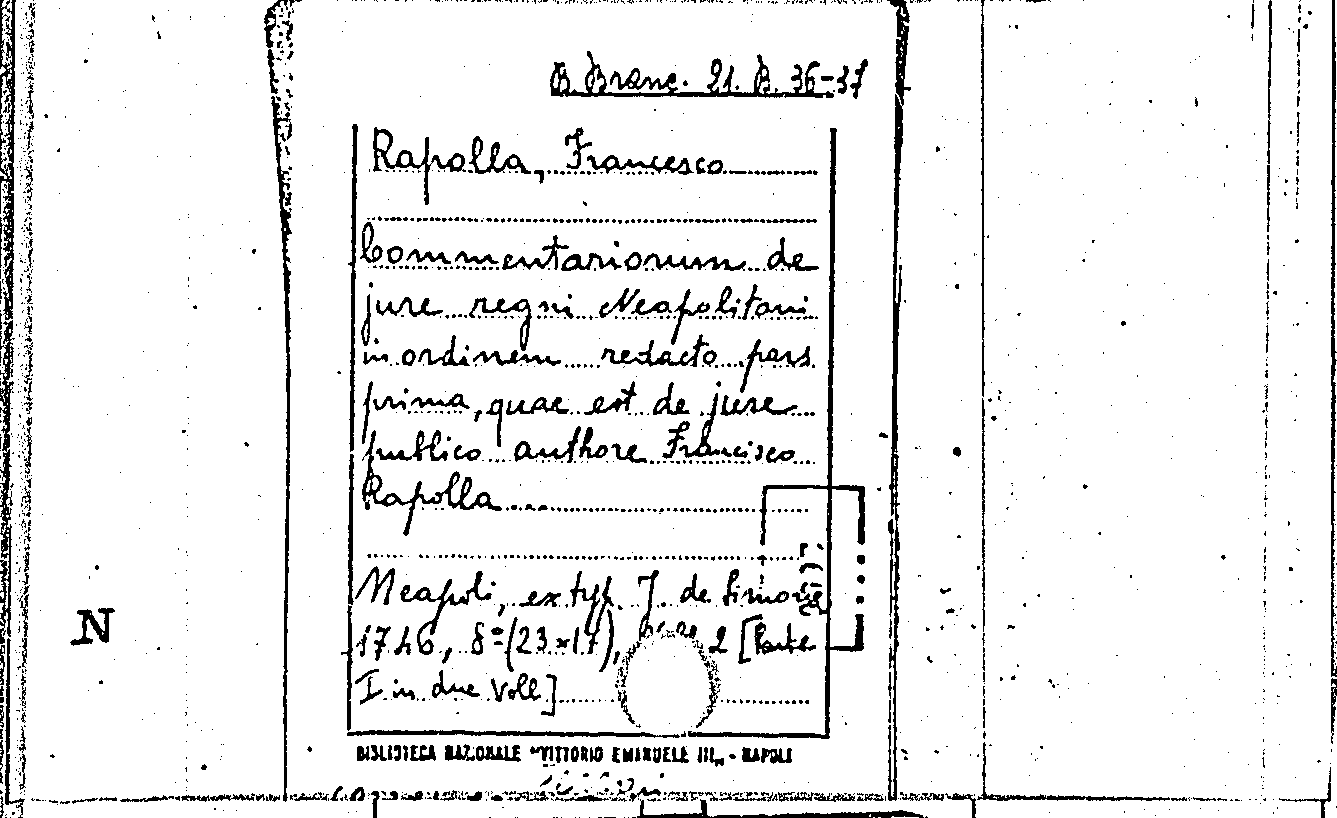 B. Branc. 21. B. 36-37
Rapolla, Francesco
Commentariorum de
jure regni Neapolitani
in ordinem redacto pars
prima, quae est de jure
publico authore Francisco
Rapolla...
Neapoli, ex typ. J. de Simone
1746, 8º (23x17), 2 [Parte
I in due voll]
BIBLIOTECA NAZIONALE "VITTORIO EMANUELE III„ - NAPOLI
N